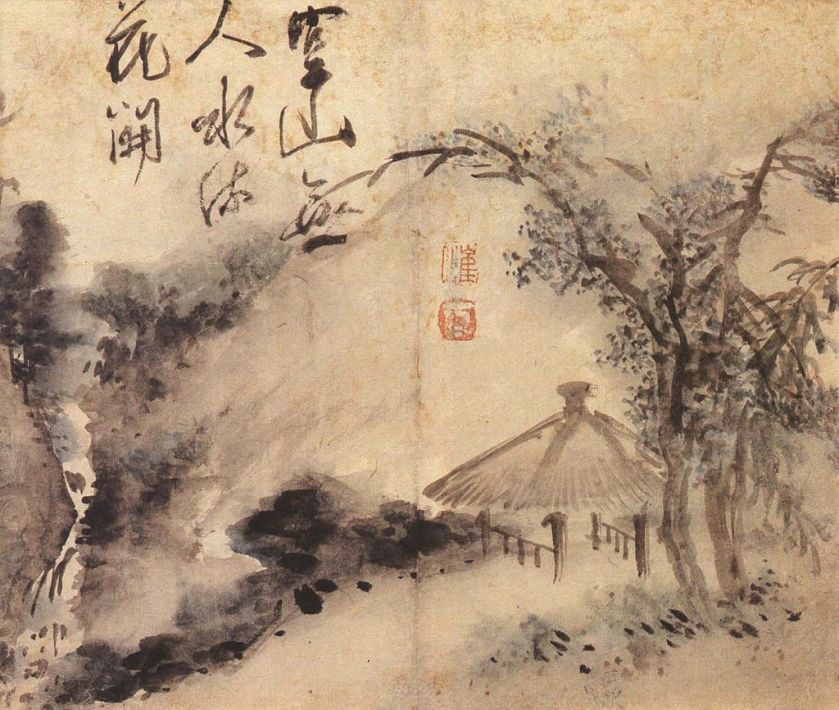 空山無
人水流
花開